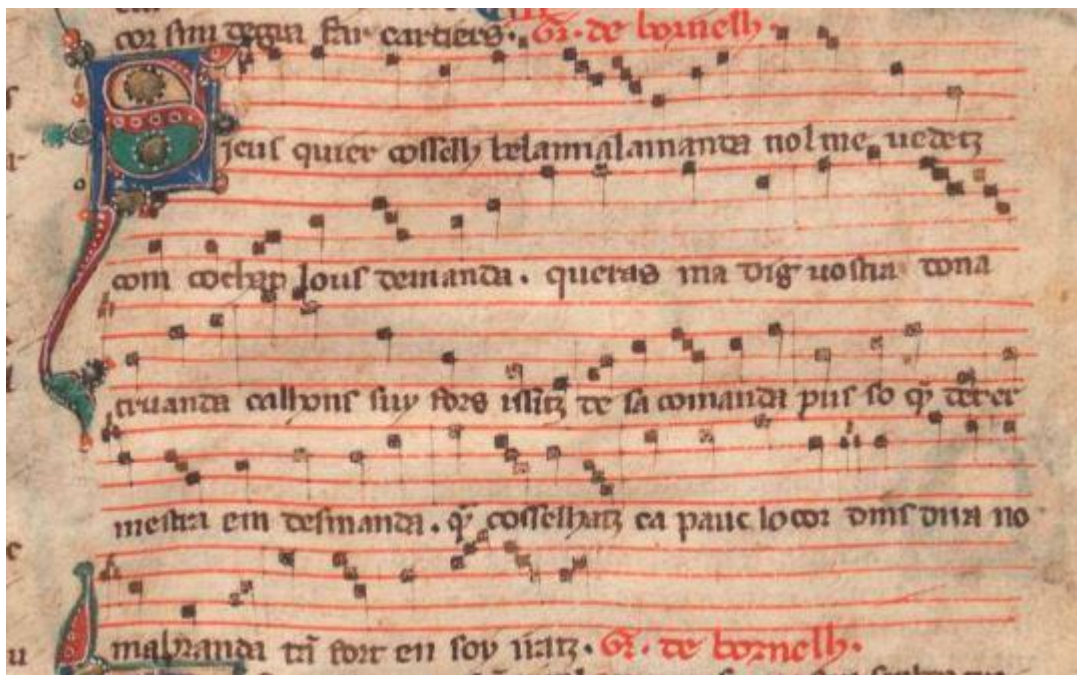 cor sim degra far cartiers. Gr. de bornelh.
Sieus quier cosselh belamialamanda nolme uedetz
com cochatz lous demanda. queras ma dig uostra dona
truanda calhons suy fors issitz de sa comanda pus so q̄
mestra em desmanda. q̄ cosselhatz ca pauc lo cor dins dira no
mabranda tā fort en soy iratz. Gr. de bornelh.